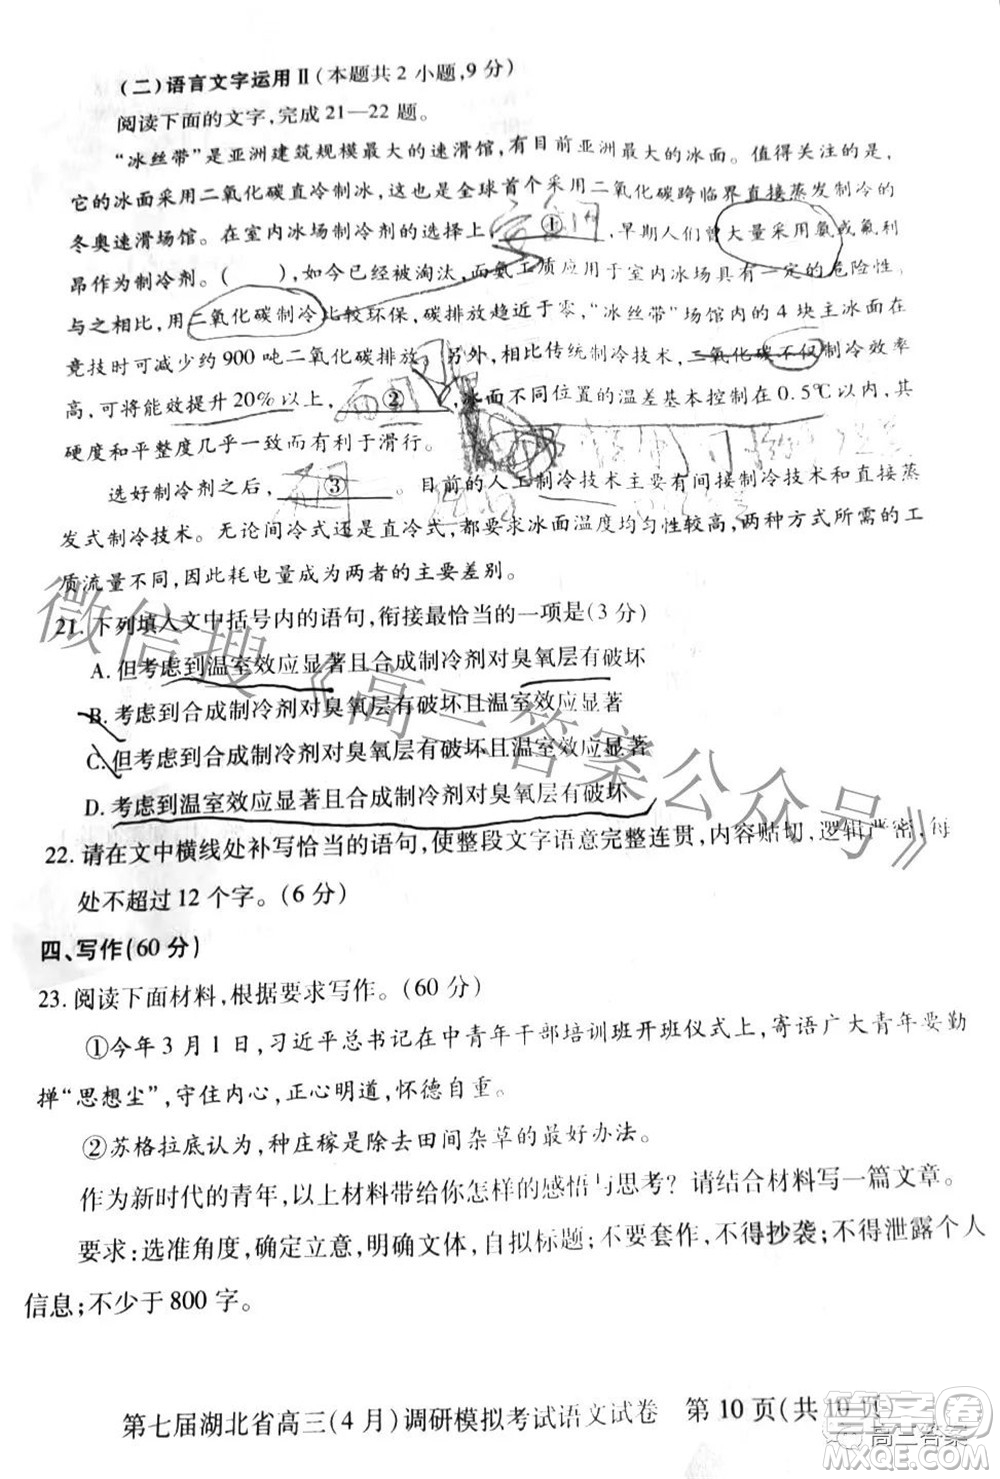 （二）语言文字运用Ⅱ（本题共2小题，9分）
阅读下面的文字，完成21—22题。
“冰丝带”是亚洲建筑规模最大的速滑馆，有目前亚洲最大的冰面。值得关注的是，
它的冰面采用二氧化碳直冷制冰，这也是全球首个采用二氧化碳跨临界直接蒸发制冷的
冬奥速滑场馆。在室内冰场制冷剂的选择上，①，早期人们曾大量采用氨或氟利
昂作为制冷剂。（ ），如今已经被淘汰，而氨工质应用于室内冰场具有一定的危险性。
与之相比，用二氧化碳制冷比较环保，碳排放趋近于零，“冰丝带”场馆内的4块主冰面在
竞技时可减少约900吨二氧化碳排放。另外，相比传统制冷技术，二氧化碳不仅制冷效率
高，可将能效提升20%以上，②，冰面不同位置的温差基本控制在0.5℃以内，其
硬度和平整度几乎一致而有利于滑行。
选好制冷剂之后，③。目前的人工制冷技术主要有间接制冷技术和直接蒸
发式制冷技术。无论间冷式还是直冷式，都要求冰面温度均匀性较高，两种方式所需的工
质流量不同，因此耗电量成为两者的主要差别。
21.下列填入文中括号内的语句，衔接最恰当的一项是（3分）
A.但考虑到温室效应显著且合成制冷剂对臭氧层有破坏
B.考虑到合成制冷剂对臭氧层有破坏且温室效应显著
C.但考虑到合成制冷剂对臭氧层有破坏且温室效应显著
D.考虑到温室效应显著且合成制冷剂对臭氧层有破坏
22.请在文中横线处补写恰当的语句，使整段文字语意完整连贯，内容贴切，逻辑严密，每
处不超过12个字。（6分）
四、写作（60分）
23.阅读下面材料，根据要求写作。（60分）
①今年3月1日，习近平总书记在中青年干部培训班开班仪式上，寄语广大青年要勤
掸“思想尘”，守住内心，正心明道，怀德自重。
②苏格拉底认为，种庄稼是除去田间杂草的最好办法。
作为新时代的青年，以上材料带给你怎样的感悟与思考？请结合材料写一篇文章。
要求：选准角度，确定立意，明确文体，自拟标题；不要套作，不得抄袭；不得泄露个人
信息；不少于800字。
第七届湖北省高三（4月）调研模拟考试语文试卷 第10页（共10页
微信搜《高三答案公众号》
答案圈
高三答案